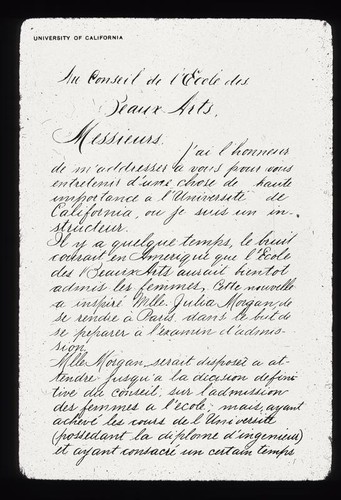 UNIVERSITY OF CALIFORNIA
Au Conseil de l'Ecole des
Beaux Arts,
Messieurs.
J'ai l'honneur
de m'addresser a vous pour vous
entretenir d'une chose de haute
importance a l'Université de
California, ou je suis un in-
structeur.
Il y a quelque temps, le bruit
courait en Amerique que l'Ecole
des Beaux Arts aurait bientot
admis les femmes, Cette nouvelle
a inspiré Mlle. Julia Morgan, de
se rendre à Paris, dans le but de
se preparer à l'examen d'admis-
sion,
Mlle Morgan serait disposeé a at-
tendre jusqu'a la decision defini-
tive du Conseil, sur l'admission
des femmes a l'école; mais, ayant
achevé les cours de l'Université
(possedant la diplome d'ingenieur)
et ayant consacré un certain temps